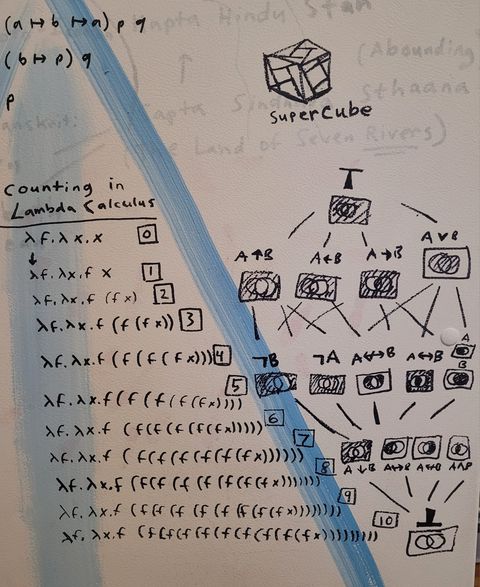 (a ↦ b ↦ a) p q
(b ↦ p) q
p
Hindu Stan
(Abounding
Sthaana
Sindhu
Land of Seven Rivers)
SuperCube
Counting in
Lambda Calculus
λf.λx.x 0
↓
λf.λx.f x 1
λf.λx.f (fx) 2
λf.λx.f (f(fx)) 3
λf.λx.f (f(f(fx))) 4
λf.λx.f(f(f(f(fx)))) 5
λf.λx.f (f(f(f(f(fx))))) 6
λf.λx.f (f(f(f(f(f(fx)))))) 7
λf.λx.f (f(f(f(f(f(f(fx))))))) 8
λf.λx.f (f(f(f(f(f(f(f(fx)))))))) 9
λf.λx.f (f(f(f(f(f(f(f(f(fx))))))))) 10
⊤
A↑B A←B A→B A∨B
¬B ¬A A↮B A↔B A
B
A↓B A∧B
⊥